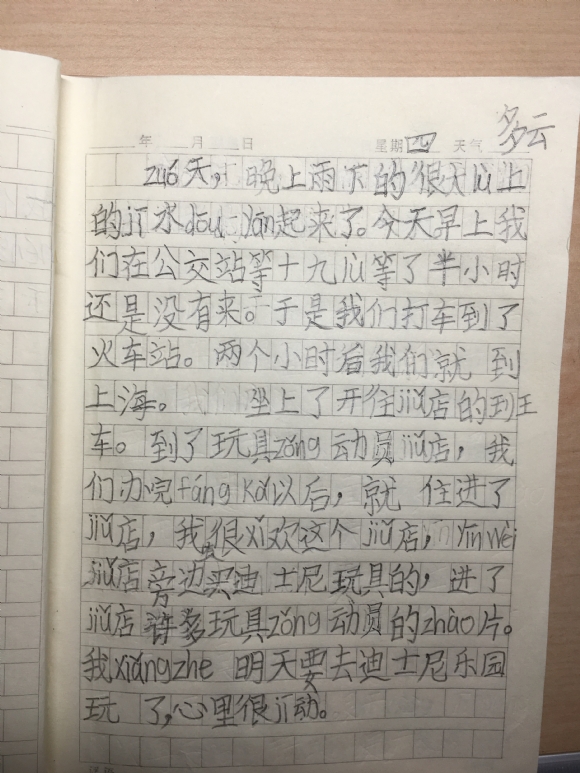 年 月 日 星期四 天气 多云
zuó天,晚上雨下的很大lù上
的jī水dōu yān起来了。今天早上我
们在公交站等十九lù等了半小时
还是没有来。于是我们打车到了
火车站。两个小时后我们就到
上海。坐上了开往jiǔ店的
车。到了玩具zǒng动员jiǔ店,我
们办完fáng kǎ以后,就住进了
jiǔ店,我很xǐ欢这个jiǔ店,yīn wèi
jiǔ店旁边买迪士尼玩具的,进了
jiǔ店许多玩具zǒng动员的zhào片。
我xiǎng zhe 明天要去迪士尼乐园
玩了,心里很jī动。